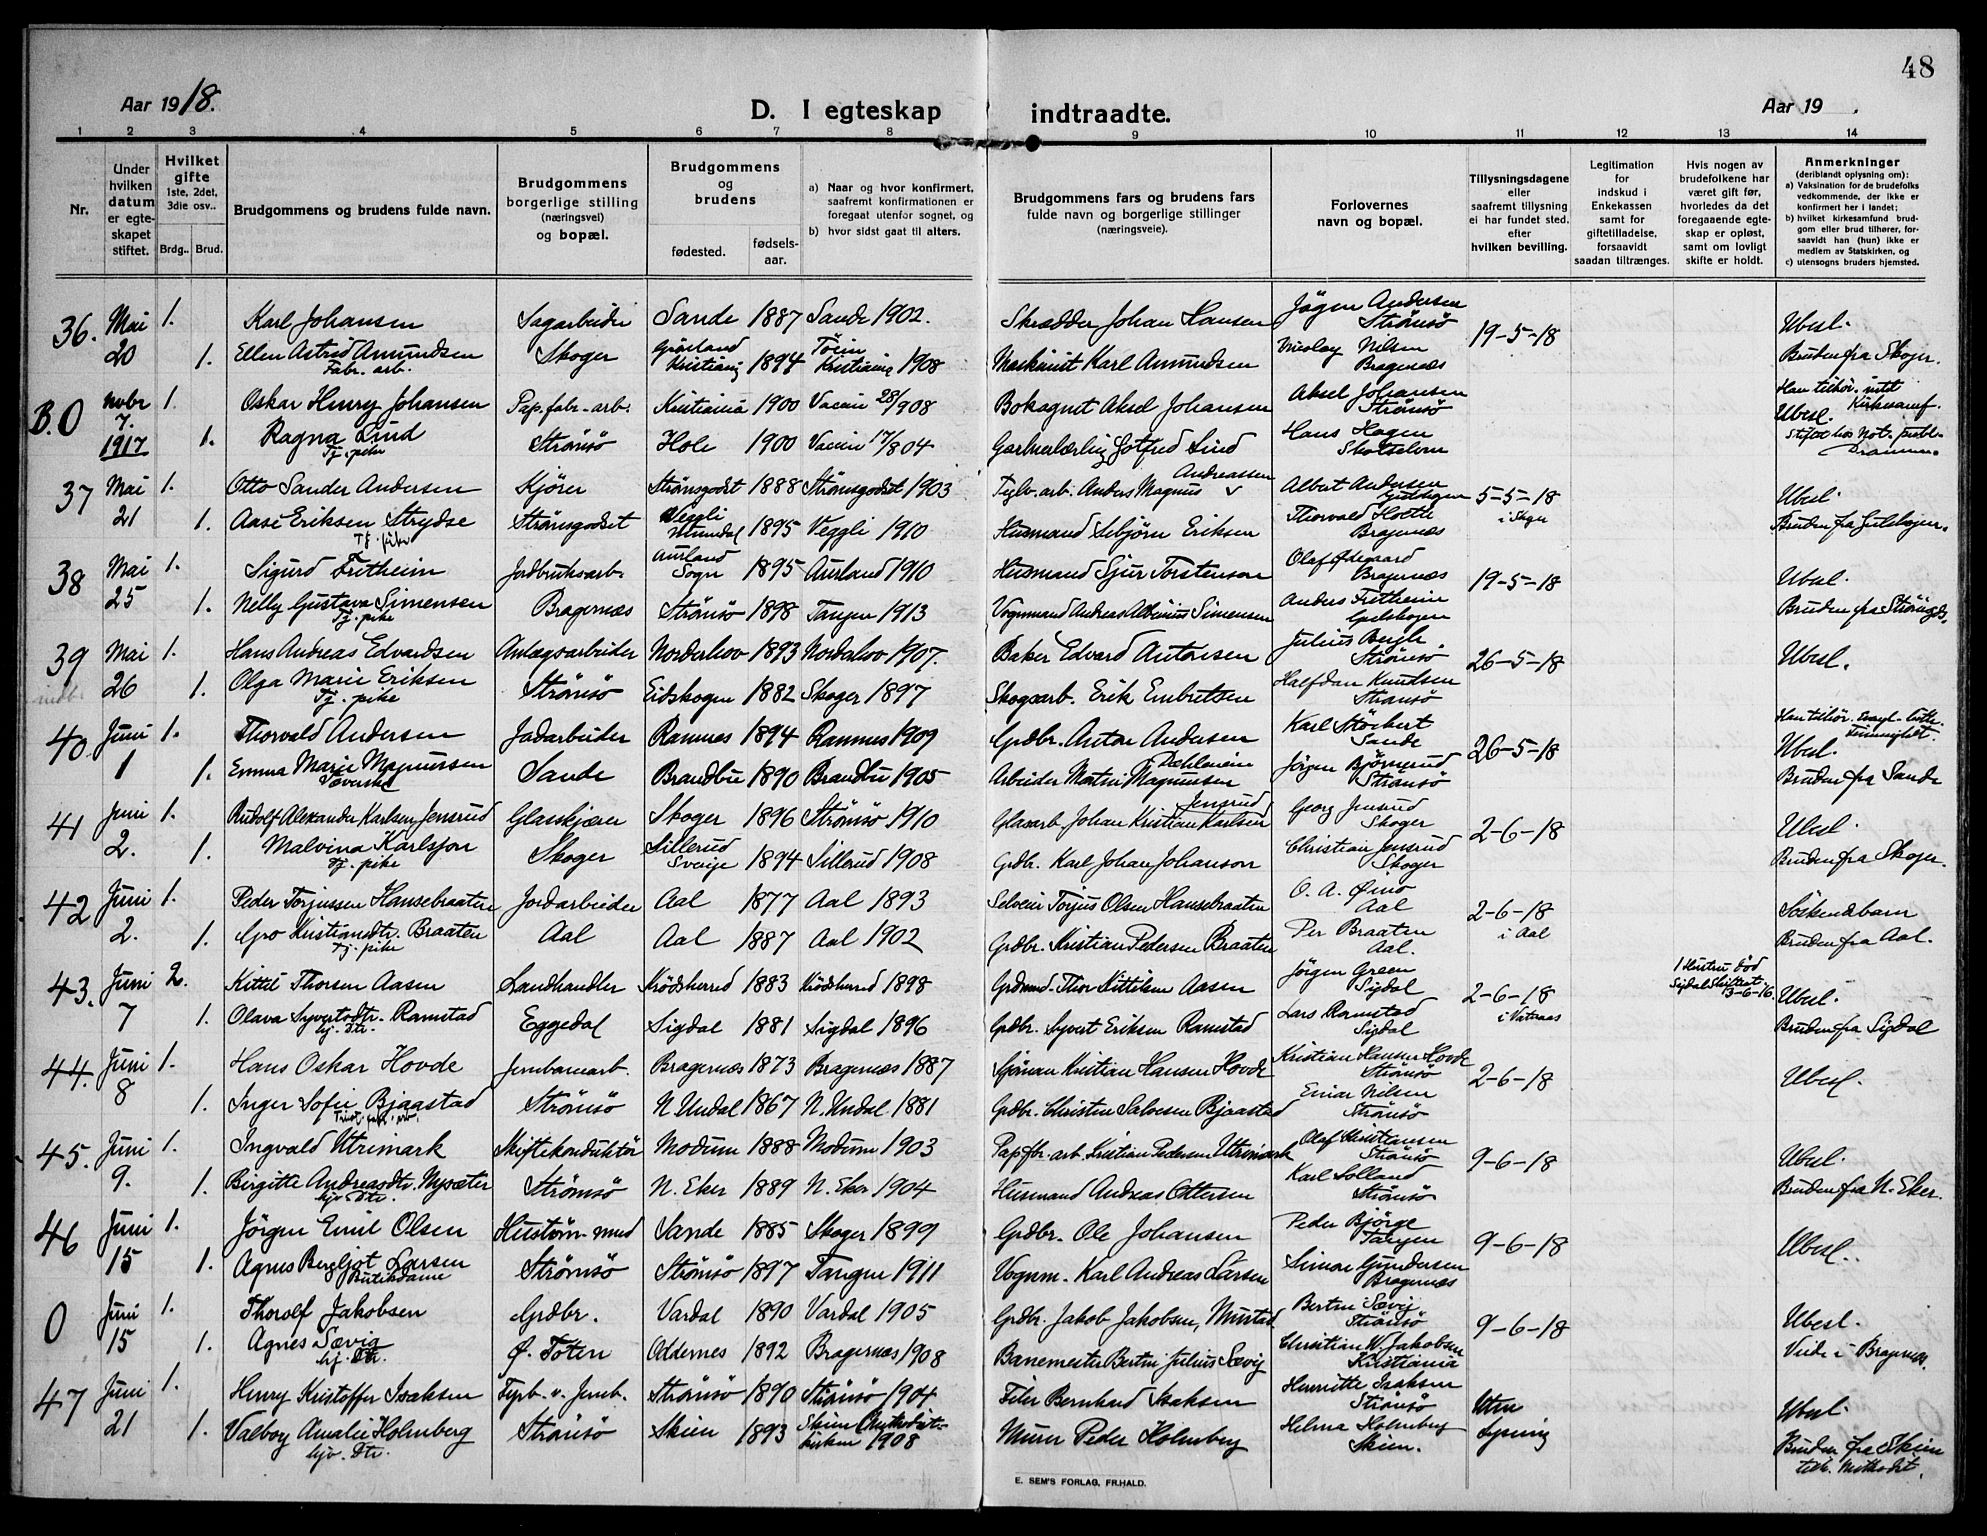 48
Aar 1918.
D. I egteskap indtraadte.
Aar 19 .
1 2 3 4 5 6 7 8 9 10 11 12 13 14
Nr.
Under hvilken datum er egteskapet stiftet.
Hvilket gifte 1ste, 2det, 3die osv..
Brdg.. Brud.
Brudgommens og brudens fulde navn.
Brudgommens borgerlige stilling (næringsvei) og bopæl.
Brudgommens og brudens
fødested. fødselsaar.
a) Naar og hvor konfirmert, saafremt konfirmationen er foregaat utenfor sognet, og
b) hvor sidst gaat til alters.
Brudgommens fars og brudens fars fulde navn og borgerlige stillinger (næringsveie).
Forlovernes navn og bopæl.
Tillysningsdagene eller saafremt tillysning ei har fundet sted, efter hvilken bevilling.
Legitimation for indskud i Enkekassen samt for giftetilladelse, forsaavidt saadan tiltrænges.
Hvis nogen av brudefolkene har været gift før, hvorledes da det foregaaende egteskap er opløst, samt om lovlig skifte er holdt.
Anmerkninger (deriblandt oplysning om):
a) Vaksination for de brudefolks vedkommende, der ikke er konfirmert her i landet;
b) hvilket kirkesamfund brudgom eller brud tilhører, forsaavidt han (hun) ikke er medlem av Statskirken, og
c) utensogns bruders hjemsted.
36. Mai 1. Karl Johansen Sagarbeider Sande 1887 Sande 1902. Skrædder Johan Hansen Jögen Andersen Strömsö 19-5-18 Ubesl.
20 1. Ellen Astrid Amundsen Fabr. arb. Skoger Kristiania 1894 Kristiania 1908 Maskinist Karl Amundsen Nicolay Nilsen Bragernæs Bruden fra Skoger.
B.O Nvbr 1. Oskar Henry Johansen Pap. fabr-arb. Kristiania 1900 Vaccin 28/908 Aksel Johansen Aksel Johansen Strömsö Han tilhör. intet Kirkesamf. Ubesl.
7. 1917 1. Ragna Lind Tj. pike Strömsö Hole 1900 Vaccin 17/804 Gotfred Lind Hans Hagen Skotselven
37 Mai 1. Otto Sander Andersen Kjörer Strömsgodset 1888 Strömsgodset 1903 Teglv. arb. Anders Magnus Andreassen Albert Andersen 5-5-18 i Skoger Ubesl.
21 1. Aase Eriksen Strydse Tj. pike Strömsgodset Veggli Numedal 1895 Veggli 1910 Husmand Sebjörn Eriksen Thorvald Holtte Bragernæs
38 Mai 1. Sigurd Fretheim Jordbruksarb. Aurland Sogn 1895 Aurland 1910 Husmand Sjur Torstenson Olaf Ødegaard Bragernæs 19-5-18 Ubesl.
25 1. Nelly Gustava Simensen Tj. pike Bragernæs Strömsö 1898 Tangen 1913 Vognmand Andreas Albinius Simensen Anders Fretheim Bruden fra Strömsgds.
39 Mai 1. Hans Andreas Edvardsen Anlægsarbeider Norderhov 1893 Norderhov 1907. Baker Edvard Antonsen Julius Bergh Strömsö 26-5-18 Ubesl.
26 1. Olga Marie Eriksen Tj. pike Strömsö Eidskogen 1882 Skoger 1897 Skogsarb. Erik Embretsen Halfdan Knudsen Strömsö
40 Juni 1. Thorvald Andersen Jordarbeider Ramnes 1894 Ramnes 1909 Grdbr. Anton Andersen Karl Störbert Sande 26-5-18 Ubesl.
1 1. Emma Marie Magnussen Væverske Sande Brandbu 1890 Brandbu 1905 Arbeider Martin Magnussen Jörgen Björnerud Strömsö Bruden fra Sande
41 Juni 1. Rudolf Alexander Karlsen Jensrud Glasskjærer Skoger 1896 Strömsö 1910 Glasarb. Johan Kristian Karlsen Jensrud Georg Jensrud Skoger 2-6-18 Ubesl.
2. 1. Malvina Karlsson Tj. pike Skoger Sillerud Sverige 1894 Sillerud 1908 Grdbr. Karl Johan Johanson Christian Jensrud Skoger Bruden fra Skoger.
42 Juni 1. Peder Torjussen Hansebraaten Jordarbeider Aal 1877 Aal 1893 Selveier Torjus Olsen Hansebraaten O. A. Øino Aal 2-6-18 i Aal
2. 1. Gro Kristiansdtr. Braaten Tj. pike Aal Aal 1887 Aal 1902 Grdbr. Kristian Pedersen Braaten Per Braaten Aal. Bruden fra Aal.
43. Juni 2. Kittil Thorsen Aasen Landhandler Krödsherred 1883 Krödsherred 1898 Grdmd. Thor Kittilsen Aasen Jörgen Green Sigdal 2-6-18 1 Hustru död Sigdal 13-6-16. Ubesl.
7 1. Olava Syvertsdtr. Ramstad hj. Dtr. Eggedal Sigdal 1881 Sigdal 1896 Grdbr. Syvert Eriksen Ramstad Lars Ramstad Sigdal Bruden fra Sigdal
44. Juni 1. Hans Oskar Hovde Jernbanearb. Bragernæs 1873 Bragernæs 1887 Sjöman Kristian Hansen Hovde Kristian Hansen Hovde Strömsö 2-6-18 Ubesl.
8 1. Inger Sofie Bjaastad Strömsö N. Undal 1867 N. Undal 1881 Grdbr. Christen Salvesen Bjaastad Einar Nilsen Strömsö
45. Juni 1. Ingvald Utrimark Skiftekonduktör Modum 1888 Modum 1903 Papfbr. arb. Kristian Pedersen Utrimark Olaf Kristiansen Strömsö 9-6-18 Ubesl.
9. 1. Birgitte Andreasdtr. Nysæter hjv Dtr. Strömsö N. Eker 1889 N. Eker 1904 Husmand Andreas Ottersen Karl Solland Strömsö Bruden fra N. Eker.
46 Juni 1. Jörgen Emil Olsen Hustöm. med Sande 1885 Skoger 1899 Grdbr. Ole Johansen Peder Björge Tangen 9-6-18 Ubesl.
15 1. Agnes Bergljot Larsen Butikdame Strömsö Strömsö 1897 Tangen 1911 Vognm. Karl Andreas Larsen Simon Gundersen Bragernæs
O Juni 1. Thorolf Jakobsen Grdbr. Vardal 1890 Vardal 1905 Grdbr. Jakob Jakobsen, Mustad Bertin Sævig Strömsö 9-6-18 Ubesl.
15 1. Agnes Sævig hj. Dtr. Ø. Toten Oddernes 1892 Bragernæs 1908 Banemester Bertin Julius Sævig Christian W. Jakobsen Kristiania Viede i Bragernæs.
47 Juni 1. Henry Kristoffer Isaksen Fyrb. v. Jernb. Strömsö 1890 Strömsö 1904 Filer Bernhard Isaksen Henriette Isaksen Strömsö Uten Ubesl.
21 1. Valborg Amalie Holmberg hjv. Dtr. Strömsö Skien 1893 Skien Methodistkirken 1908 Murer Peder Holmberg Helma Holmberg Skien. Lysning Bruden fra Skien tilh. Methodist.
E. SEM'S FORLAG, FR.HALD.